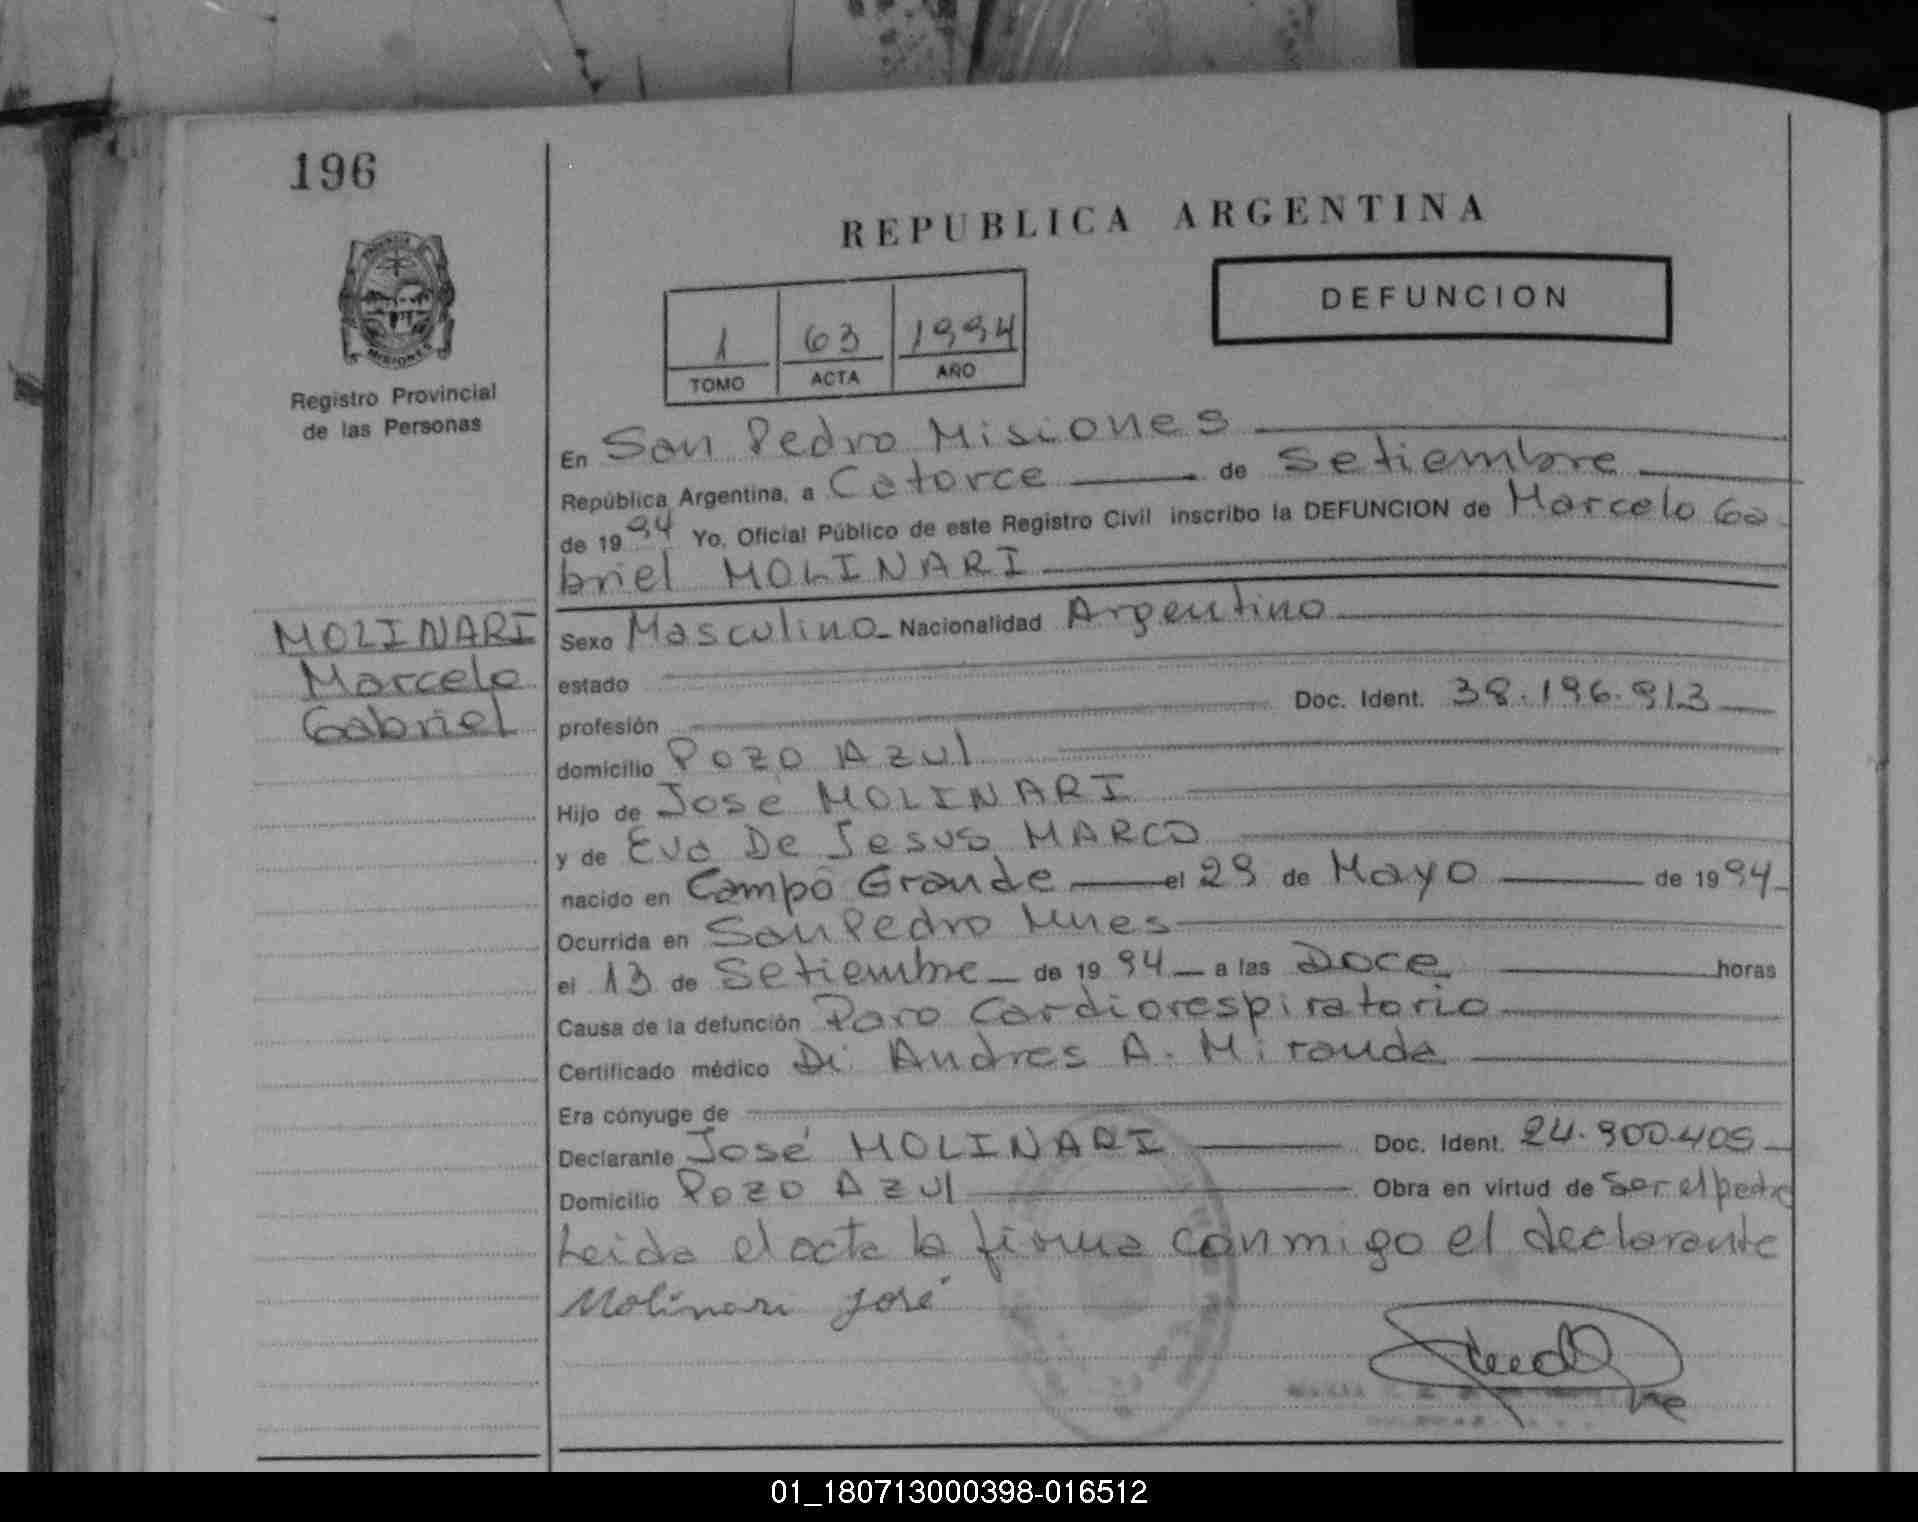 196
REPUBLICA ARGENTINA
DEFUNCION
1 63 1994
TOMO ACTA AÑO
MISIONES
Registro Provincial
de las Personas
En San Pedro Misiones
República Argentina, a Catorce de Setiembre
de 1994 Yo, Oficial Público de este Registro Civil inscribo la DEFUNCION de Marcelo Ga
briel MOLINARI
MOLINARI
Marcelo
Gabriel
Sexo Masculino Nacionalidad Argentino
estado
profesión Doc. Ident. 38.196.913
domicilio Pozo Azul
Hijo de José MOLINARI
y de Eva De Jesus MARCO
nacido en Campo Grande el 29 de Mayo de 1994
Ocurrida en San Pedro Mnes
el 13 de Setiembre de 1994 a las Doce horas
Causa de la defunción Paro Cardiorespiratorio
Certificado médico Dr. Andres A. Miranda
Era cónyuge de
Declarante José MOLINARI Doc. Ident. 24.900.405
Domicilio Pozo Azul Obra en virtud de Ser el padre
Leida el acta la firma conmigo el declarante
Molinari José
01_180713000398-016512